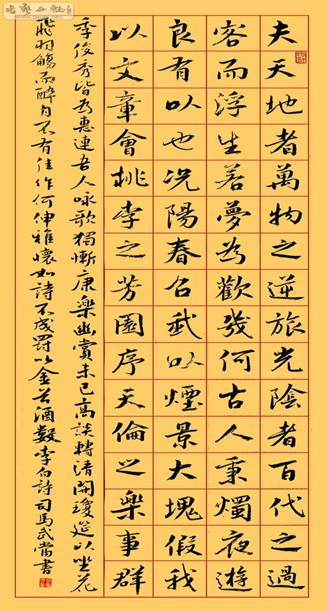 夫天地者萬物之逆旅光陰者百代之過
客而浮生若夢為歡幾何古人秉燭夜遊
良有以也況陽春召我以煙景大塊假我
以文章會桃李之芳園序天倫之樂事群
季俊秀皆為惠連吾人詠歌獨慚康樂幽賞未已高談轉清開瓊筵以坐花
飛羽觴而醉月不有佳作何伸雅懷如詩不成罰以金谷酒數李白詩司馬武當書